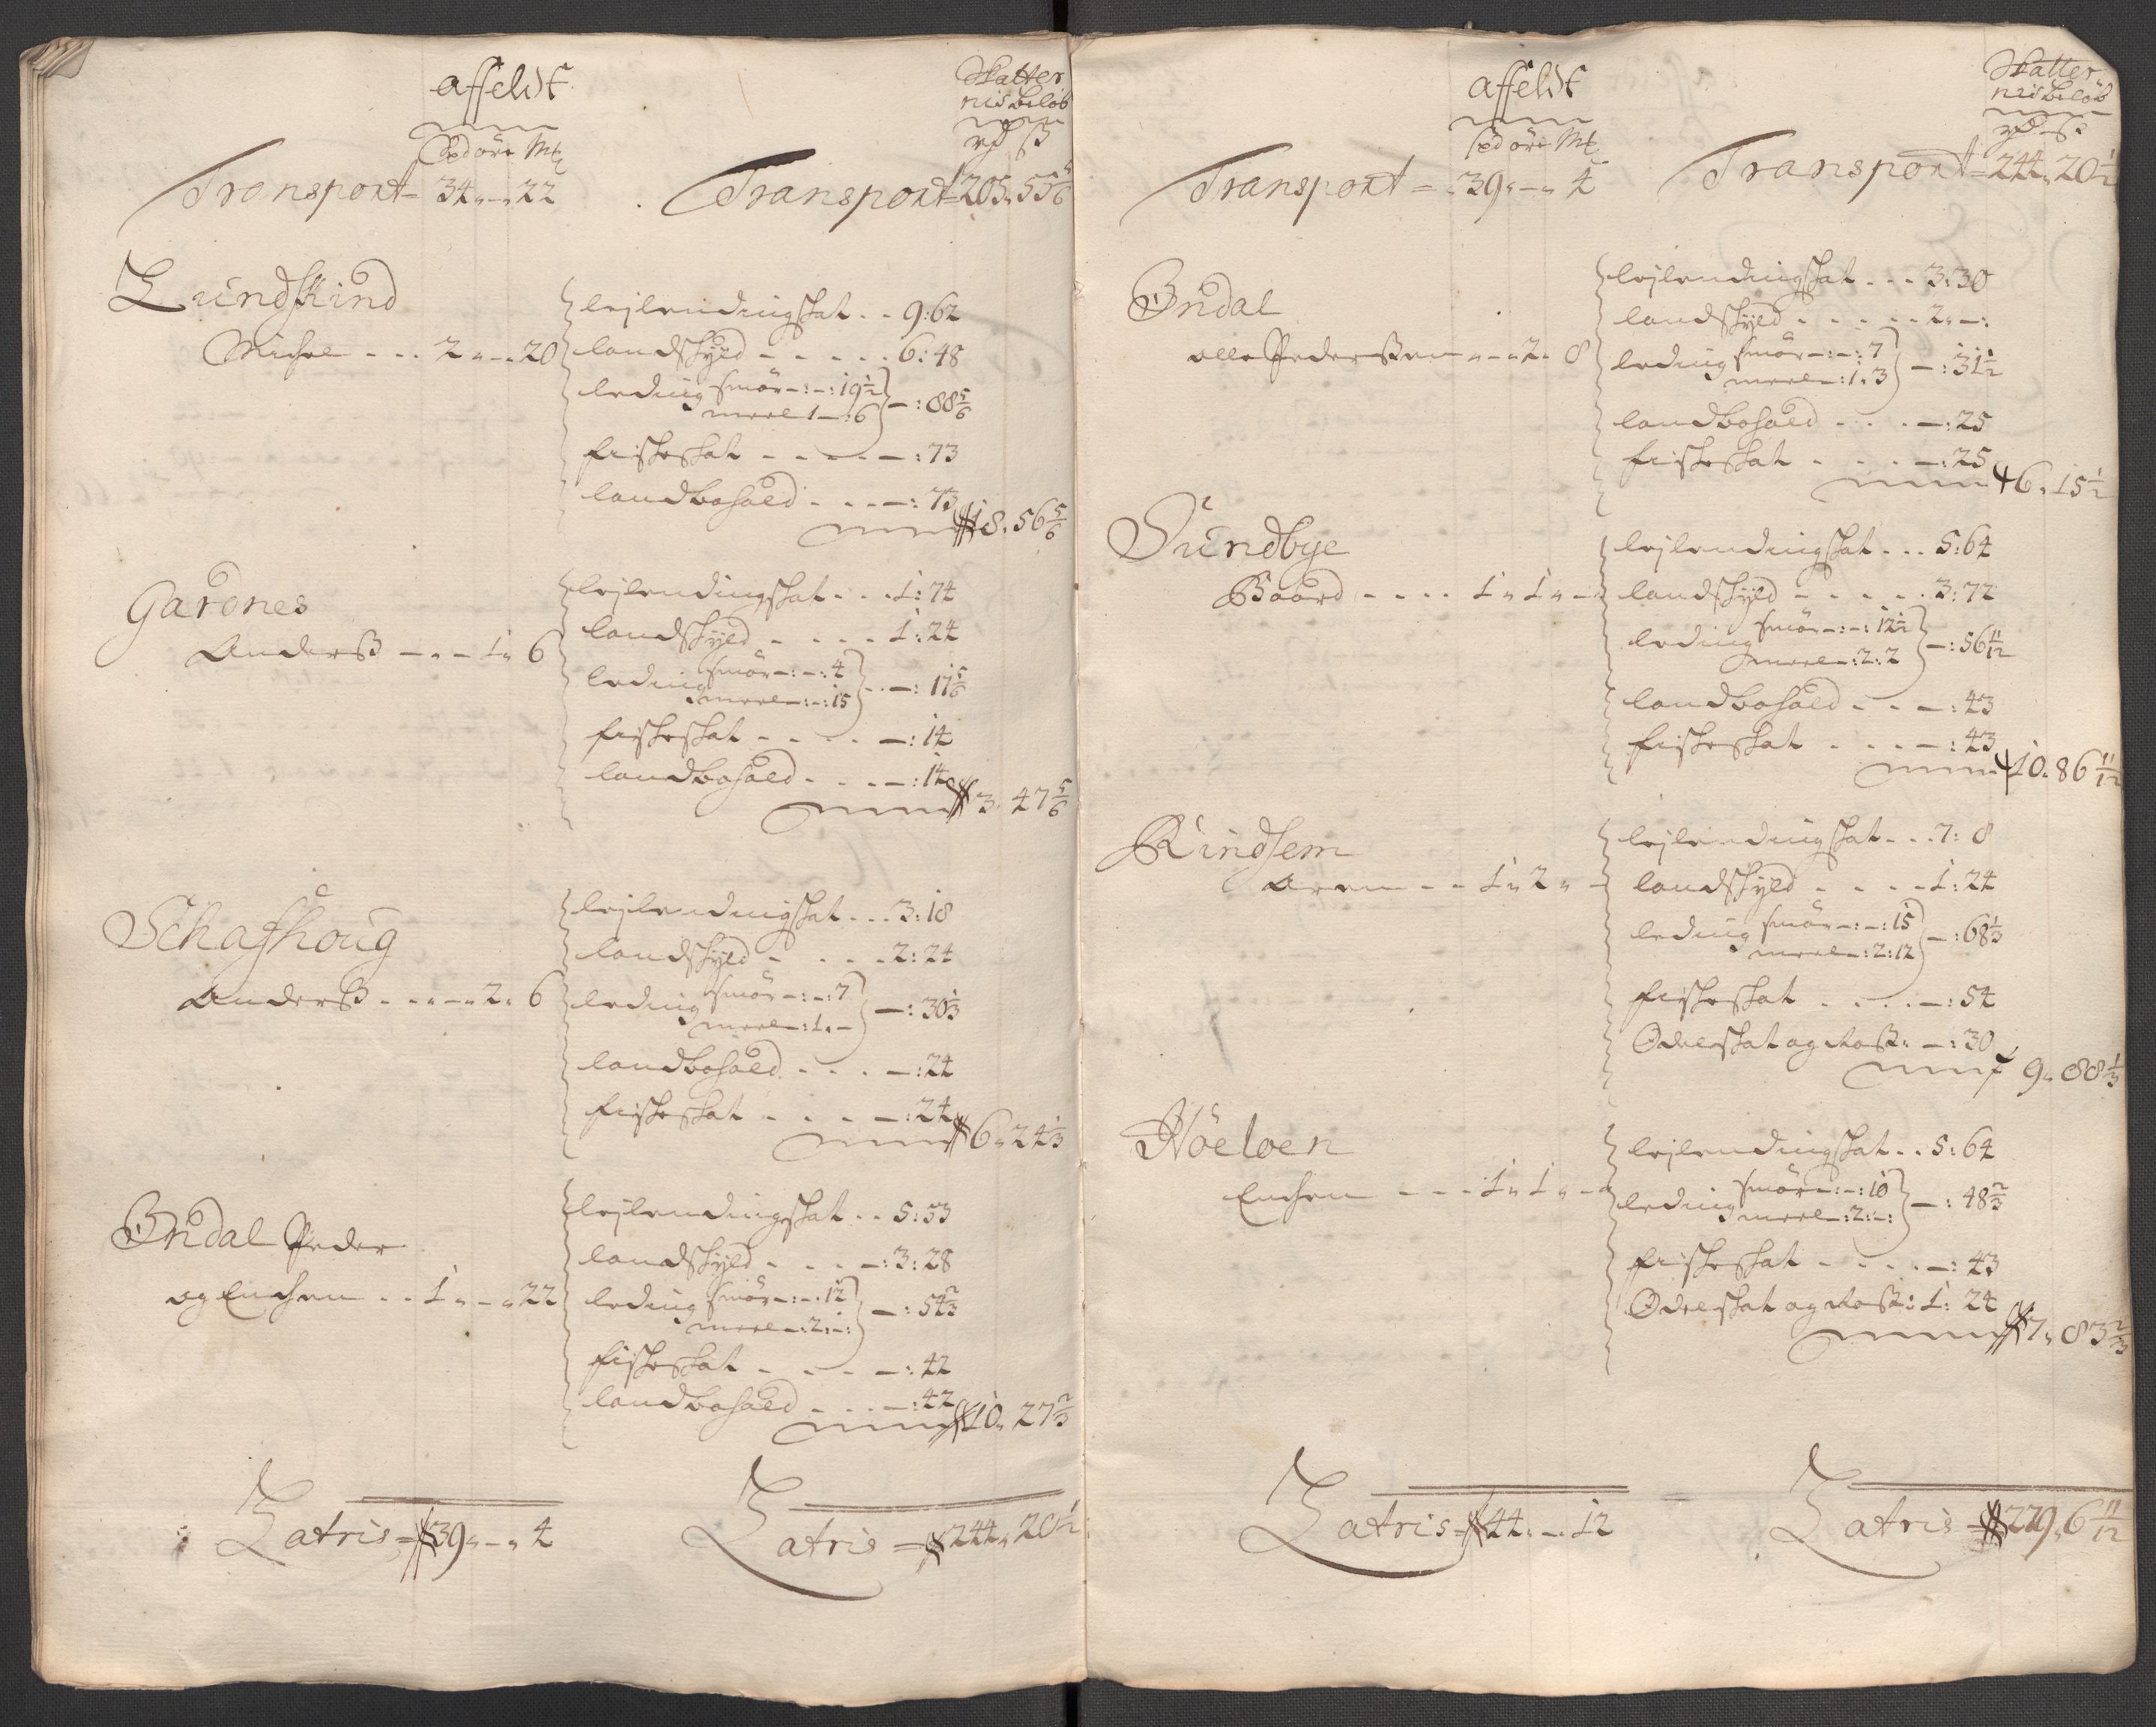 affeldt
Skatter
nis beløb
Spd öre Mk
rd ß
Transport = 34 „ - „ 22
Transport = 205 „ 55 5/6
Lundskind
Michel - - - 2 „ - „ 20
lejlendingskat - - 9:62
landskyld - - - - - 6:48
leding smör -:-:19 1/2
meel 1 -:6
-: 88 5/6
fiskeskat - - - - - -: 73
landbohold - - - -: 73
18 „ 56 5/6
Gardnes
Anderß - „ - 1 „ 6
lejlendingskat - - - 1:74
landskyld - - - - 1:24
leding smör -:-: 4
meel -:-: 15
-: 17 5/6
fiskeskat - - - - -: 14
landbohold - - - -: 14
3 „ 47 5/6
Schafhoug
Anderß - - - „ - „ 2 „ 6
lejlendingskat - - - 3:18
landskyld - - - - 2:24
leding smör -:-: 7
meel -: 1 „ -
-: 30 1/3
landbohold - - - -: 24
fiskeskat - - - -: 24
6 „ 24 1/3
Öndal Peder
og Enchen - - 1 „ - „ 22
lejlendingskat - - 5:53
landskyld - - - -: 3:28
leding smör -:-: 12
meel -: 2:-:
-: 54 2/3
fiskeskat - - - -: 42
landbohold - - - -: 42
10 „ 27 2/3
Latris = 39 „ - „ 4
Latris = 244 „ 20 1/2
affeldt
Skatter
nis beløb
Spd öre Mk
rd ß
Transport = 39 „ - „ 4
Transport = 244 „ 20 1/2
Öndal
olle Pederßen „ - „ 2 „ 8
lejlendingskat - - - 3:30
landskyld - - - - - 2 „ -:
leding smör -:-: 7
meel -: 1 „ 3
-: 31 1/2
landbohold - - - -: 25
fiskeskat - - - -: 25
6 „ 15 1/2
Sundbye
Baard - - - - 1 „ 1 „ -
lejlendingskat - - - 5:64
landskyld - - - - - 3:72
leding smör -:-: 12 1/2
meel -: 2:2
-: 56 11/12
landbohold - - -: 43
fiskeskat - - - -: 43
10 „ 86 11/12
Rindsem
Aren - - 1 „ 2 „ -
lejlendingskat - - - 7: 8
landskyld - - - - 1:24
leding smör -:-: 15
meel -: 2:12
-: 68 1/3
fiskeskat - - - -: 54
Odelskat og Roß: -: 30
9 „ 88 1/3
Höeloen
Enchen - - - 1 „ 1 „ -
lejlendingskat - - 5:64
leding smör -:-: 10
meel -: 2:-:
-: 48 2/3
fiskeskat - - - -: 43
Odelskat og Roß: 1: 24
7 „ 83 2/3
Latris = 44 „ - „ 12
Latris = 279 „ 6 11/12